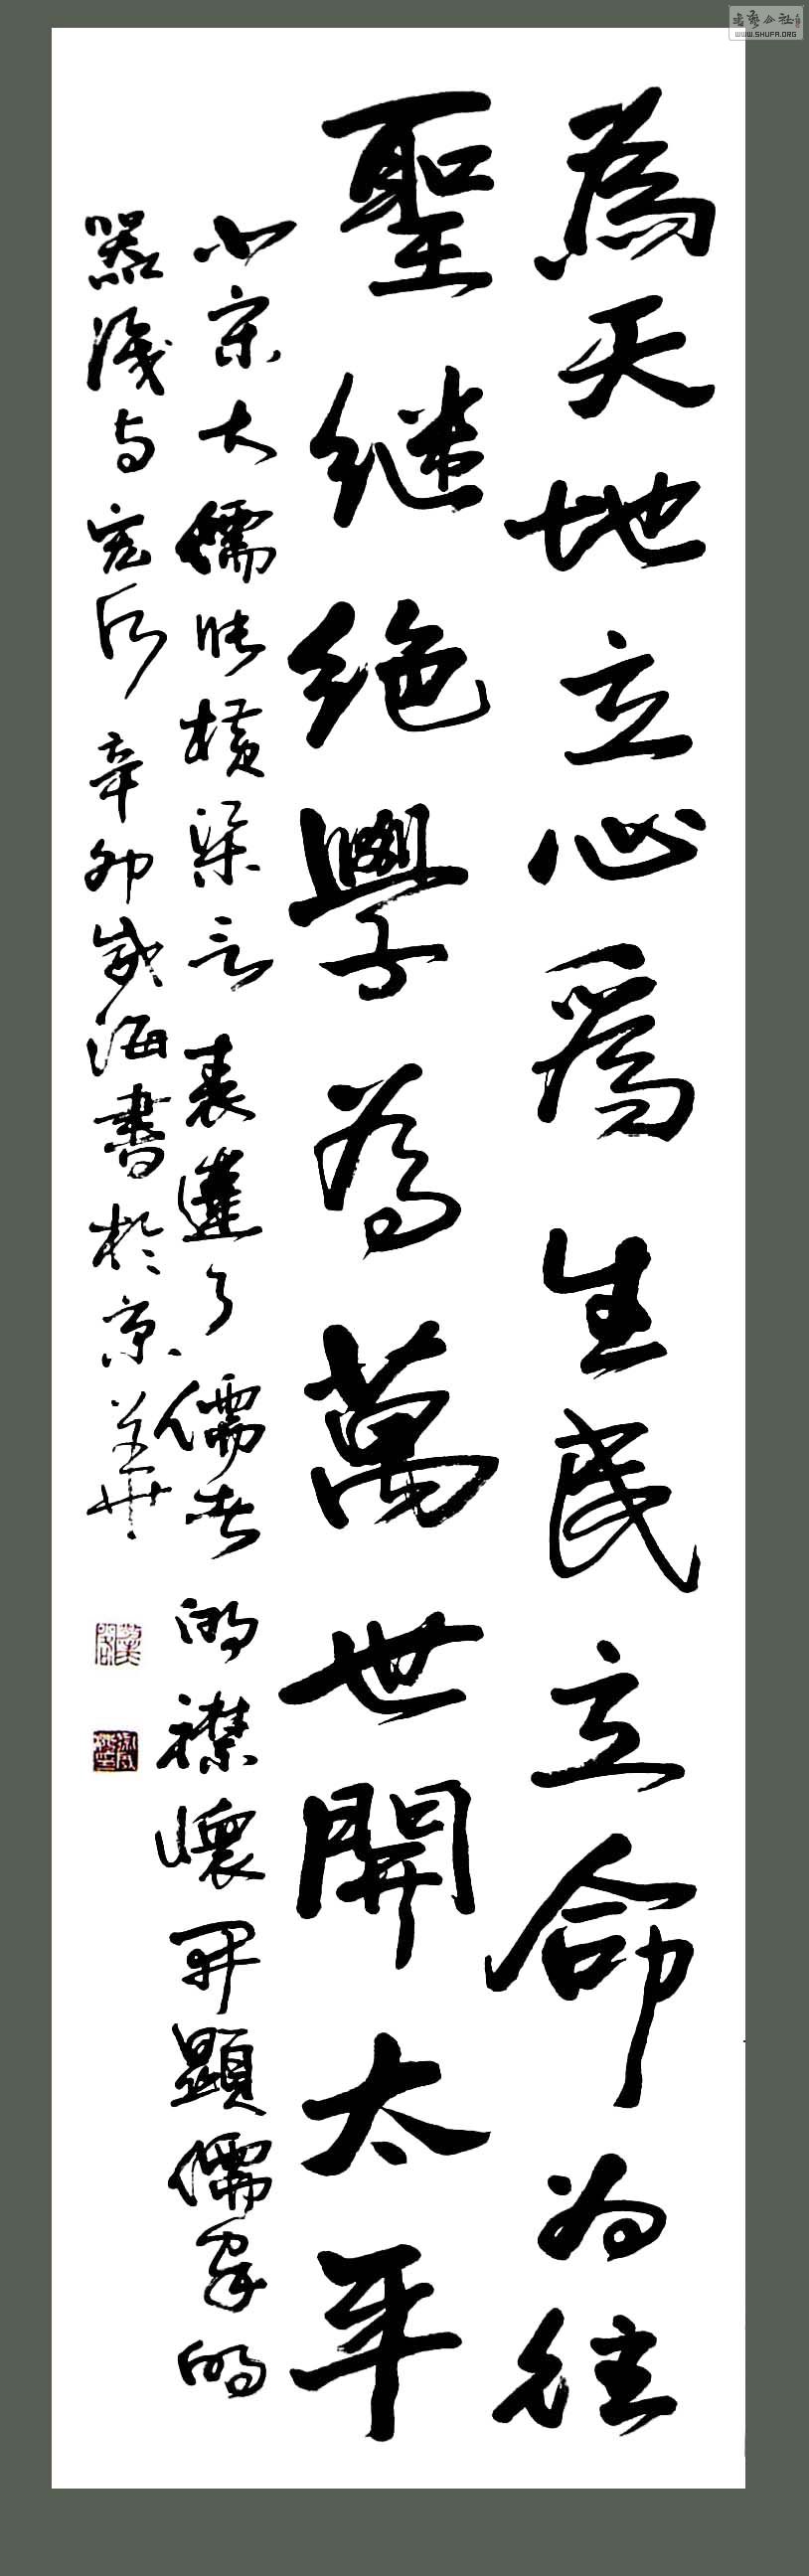 為天地立心爲生民立命为往
聖继绝學為萬世開太平
北宋大儒張横渠言表達了儒者的襟懷开顯儒家的
器識与宏願辛卯歲海書於京華
書藝公社
WWW.SHUFA.ORG